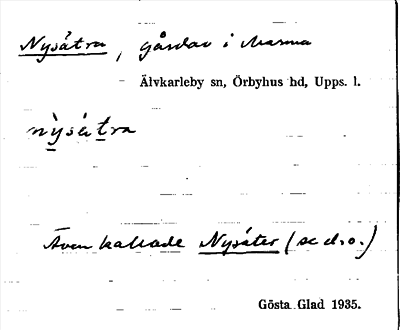 Nysätra, gårdar i Marma
Älvkarleby sn, Örbyhus hd, Upps. l.
nỳsä́tra
Även kallade Nysäter (se d.o.)
Gösta Glad 1935.